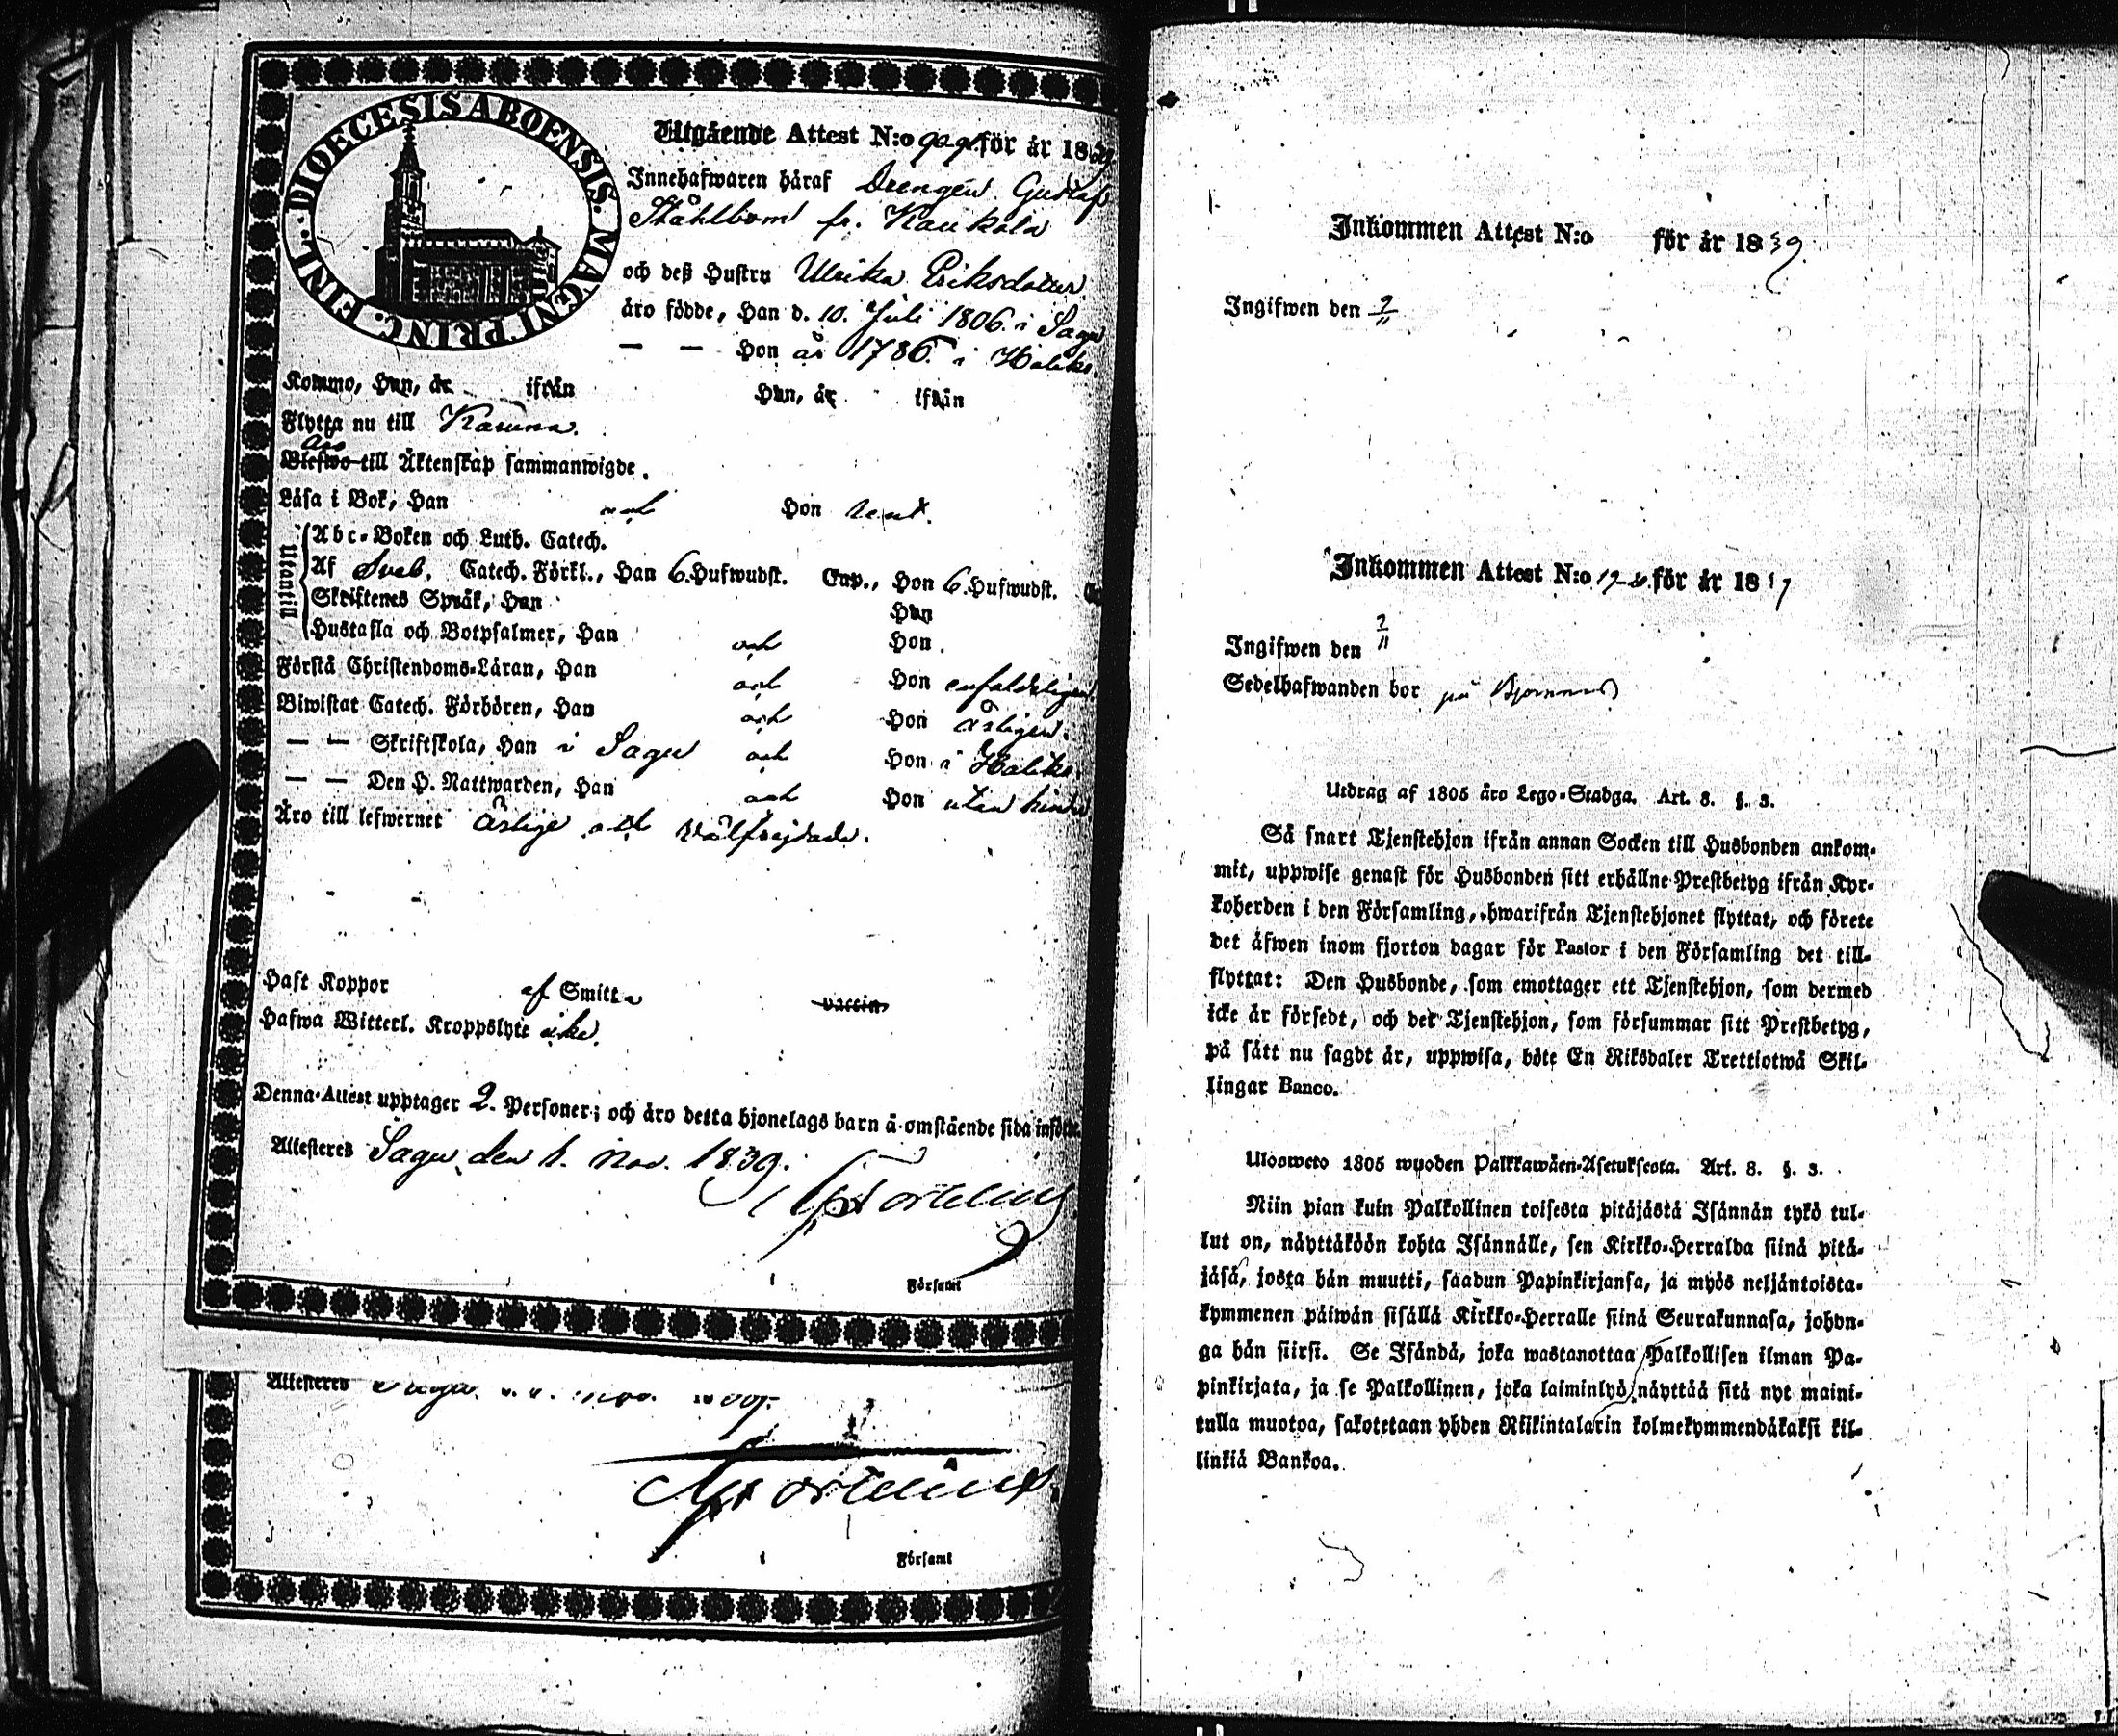 DIOECESIS ABOENSIS. MAGNI PRINC. FINL.
Utgående Attest N:o för år 1839
Innehafwaren håraf Drengen Gustaf
Ståhlbom fr. Kaukola
och deß Hustru Ulrika Eriksdotter
åro födde, Han d. 10. Juli 1806. i Sagu
— — Hon år 1786. i Haliko.
Kommo, Han, år ifrån Hon, år ifrån
Flytta nu till Karuna.
åro
Blefwo till Åktenskap sammanwigde.
Låsa i Bok, Han och Hon rent.
Utantill
Abc-Boken och Luth. Catech.
Af Sveb. Catech. Förkl., Han 6. Hufwudst. Cap., Hon 6. Hufwudst.
Skriftenes Språk, Han Hon
Hustafla och Botpsalmer, Han och Hon.
Förstå Christendoms-Låran, Han och Hon enfaldeligen
Biwistat Catech. Förhören, Han och Hon årligen.
— — Skriftskola, Han i Sagu och Hon i Haliko.
— — Den H. Nattwarden, Han och Hon utan hinder
Åro till lefwernet årlige och wälfrejdade.
Haft Koppor af Smitta vaccin
Hafwa Witterl. Kroppslyte icke.
Denna Attest upptager 2. Personer; och åro detta hjonelags barn å omstående sida införde.
Attesteres Sagu den 1. Nov. 1839.
i Församl
Attesteres Sagu nov.
i Församl
Inkommen Attest N:o för år 1839
Ingifwen den 9/11
Inkommen Attest N:o 19-20 för år 18
Ingifwen den
Sedelhafwanden bor på
Utdrag af 1805 åro Lego-Stadga. Art. 8. §. 3.
Så snart Tjenstehjon ifrån annan Socken till Husbonden ankom-
mit, uppwise genast för Husbonden sitt erhållne Prestbetyg ifrån Kyr-
koherden i den Församling, hwarifrån Tjenstehjonet flyttat, och förete
det åfwen inom fjorton dagar för Pastor i den Församling det till-
flyttat: Den Husbonde, som emottager ett Tjenstehjon, som dermed
icke år försedt, och det Tjenstehjon, som försummar sitt Prestbetyg,
på sått nu sagdt år, uppwisa, böte En Riksdaler Trettiotwå Skil-
lingar Banco.
Ulosweto 1805 wuoden Palkkawåen-Asetuksesta. Art. 8. §. 3.
Niin pian kuin Palkollinen toisesta pitåjåstå Isånnån tykö tul-
lut on, nåyttåköön kohta Isånnålle, sen Kirkko-Herralda siinå pitå-
jåså, josta hån muutti, saadun Papinkirjansa, ja myös neljåntoista-
kymmenen påiwån sisållå Kirkko-Herralle siinå Seurakunnasa, johon-
ga hån siirsi. Se Isåndå, joka wastanottaa Palkollisen ilman Pa-
pinkirjata, ja se Palkollinen, joka laiminlyö nåyttåå sitå nyt maini-
tulla muotoa, sakotetaan yhden Riikintalarin kolmekymmendåkaksi kil-
linkiå Bankoa.